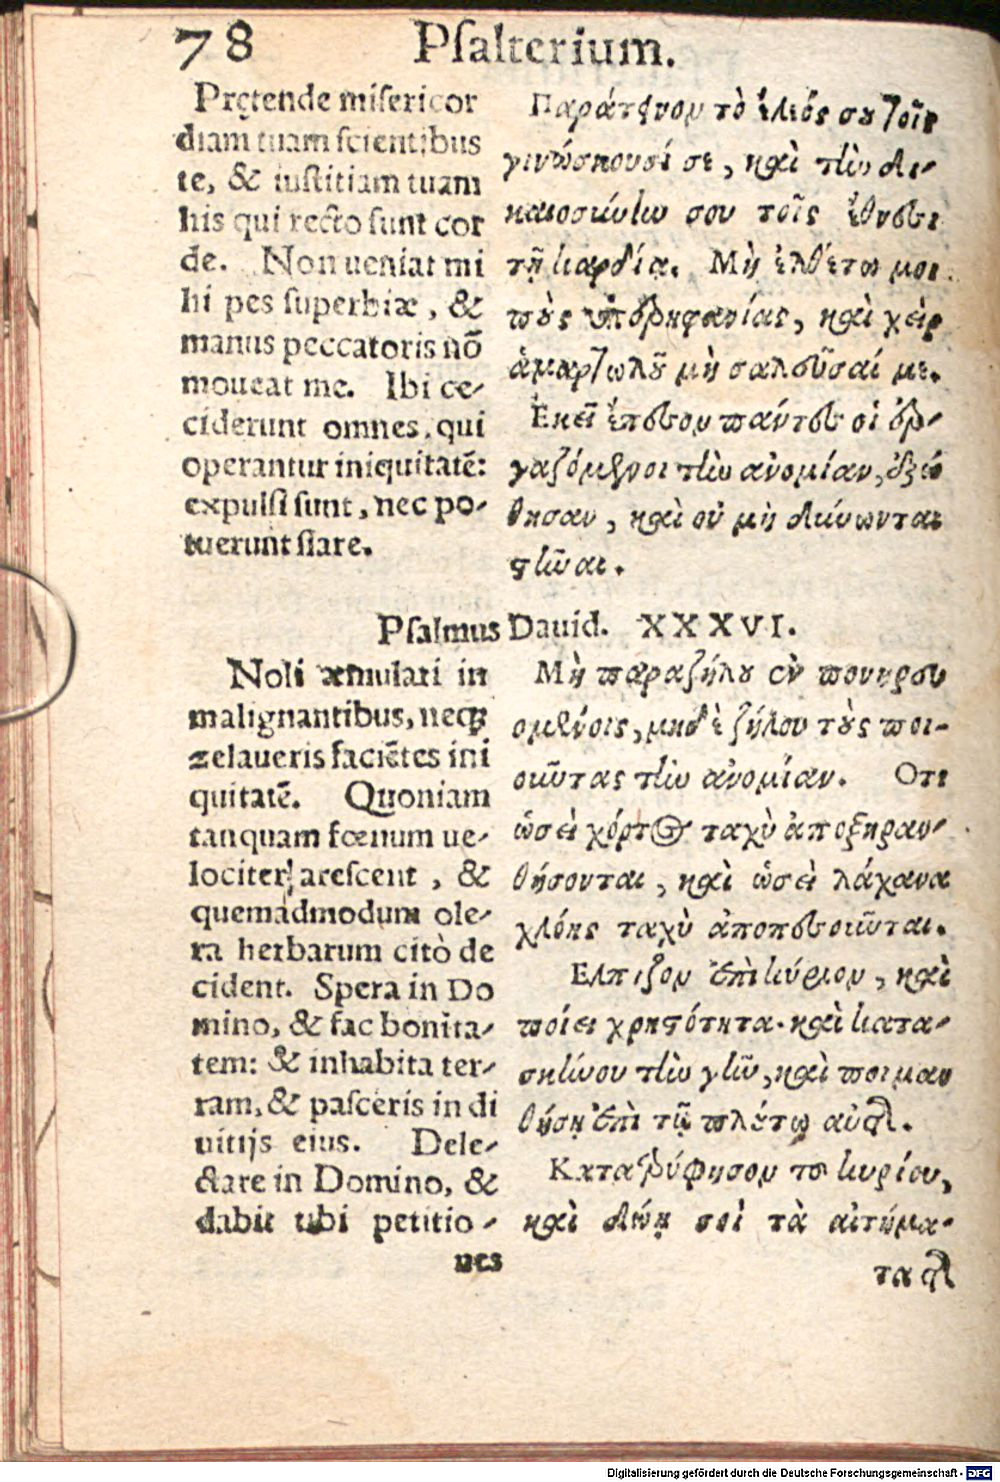 78 Psalterium.
Prętende misericor
diam tuam scientibus
te, & iustitiam tuam
his qui recto sunt cor
de. Non ueniat mi
hi pes superbiæ, &
manus peccatoris nō
moueat me. Ibi ce-
ciderunt omnes, qui
operantur iniquitatē:
expulsi sunt, nec po-
tuerunt stare.
Παράτεινον τὸ ἔλεός σου τοῖς
γινώσκουσί σε, καὶ τὴν δι-
καιοσύνην σου τοῖς ἐυθέσι
τῇ καρδίᾳ. Μὴ ἐλθέτω μοι
ποὺς ὑπερηφανίας, καὶ χεὶρ
ἁμαρτωλοῦ μὴ σαλεύσαί με.
Εκεῖ ἔπεσον πάντες οἱ ἐρ-
γαζόμενοι τὴν ἀνομίαν, ἐξώ
θησαν, καὶ οὐ μὴ δύνωνται
στῆναι.
Psalmus Dauid. XXXVI.
Noli æmulari in
malignantibus, neq;
zelaueris faciētes ini
quitatē. Quoniam
tanquam fœnum ue-
lociter arescent, &
quemadmodum ole-
ra herbarum citò de
cident. Spera in Do
mino, & fac bonita-
tem: & inhabita ter-
ram, & pasceris in di
uitijs eius. Dele-
ctare in Domino, &
dabit tibi petitio-
nes
Μὴ παραζήλου ἐν πονηρευ
ομένοις, μηδὲ ζήλου τοὺς ποι-
οῦντας τὴν ἀνομίαν. Οτι
ὡσεὶ χόρτος ταχὺ ἀποξηραν-
θήσονται, καὶ ὡσεὶ λάχανα
χλόης ταχὺ ἀποπεσοῦνται.
Ελπιζον ἐπὶ κύριον, καὶ
ποίει χρηστότητα. καὶ κατα-
σκήνου τὴν γῆν, καὶ ποιμαν
θήσῃ ἐπὶ τῷ πλούτῳ αὐτῆς.
Κατατρύφησον τοῦ κυρίου,
καὶ δώῃ σοὶ τὰ αἰτήμα-
τα τῆς
Digitalisierung gefördert durch die Deutsche Forschungsgemeinschaft - DFG